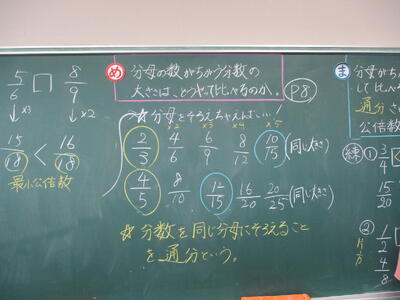 5/6 □ 8/9
↓×3 ↓×2
15/18 < 16/18
最小公倍数
め 分母の数がちがう分数の
大きさは、どうやって比べるのか。
P8
☆分母をそろえちゃえばいい
×2 ×3 ×4 ×5
2/3 4/6 6/9 8/12 10/15 (同じ大きさ)
4/5 8/10 12/15 16/20 20/25 (同じ大きさ)
☆分数を同じ分母にそろえること
を通分という。
ま 分母がち
して比べ
通分さ
公倍数
練 ① 3/4
15/20
② 1/2
4/8